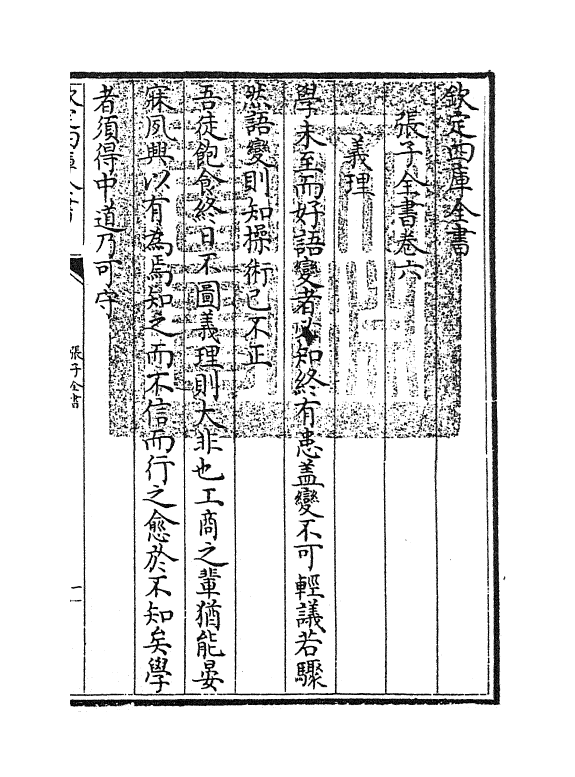 欽定四庫全書
張子全書卷六
義理
學未至而好語變者必知終有患盖變不可輕議若驟
然語變則知操術已不正
吾徒飽食終日不圖義理則大非也工商之輩猶能晏
寐夙興以有為焉知之而不信而行之愈於不知矣學
者須得中道乃可守
欽定四庫全書
張子全書
一